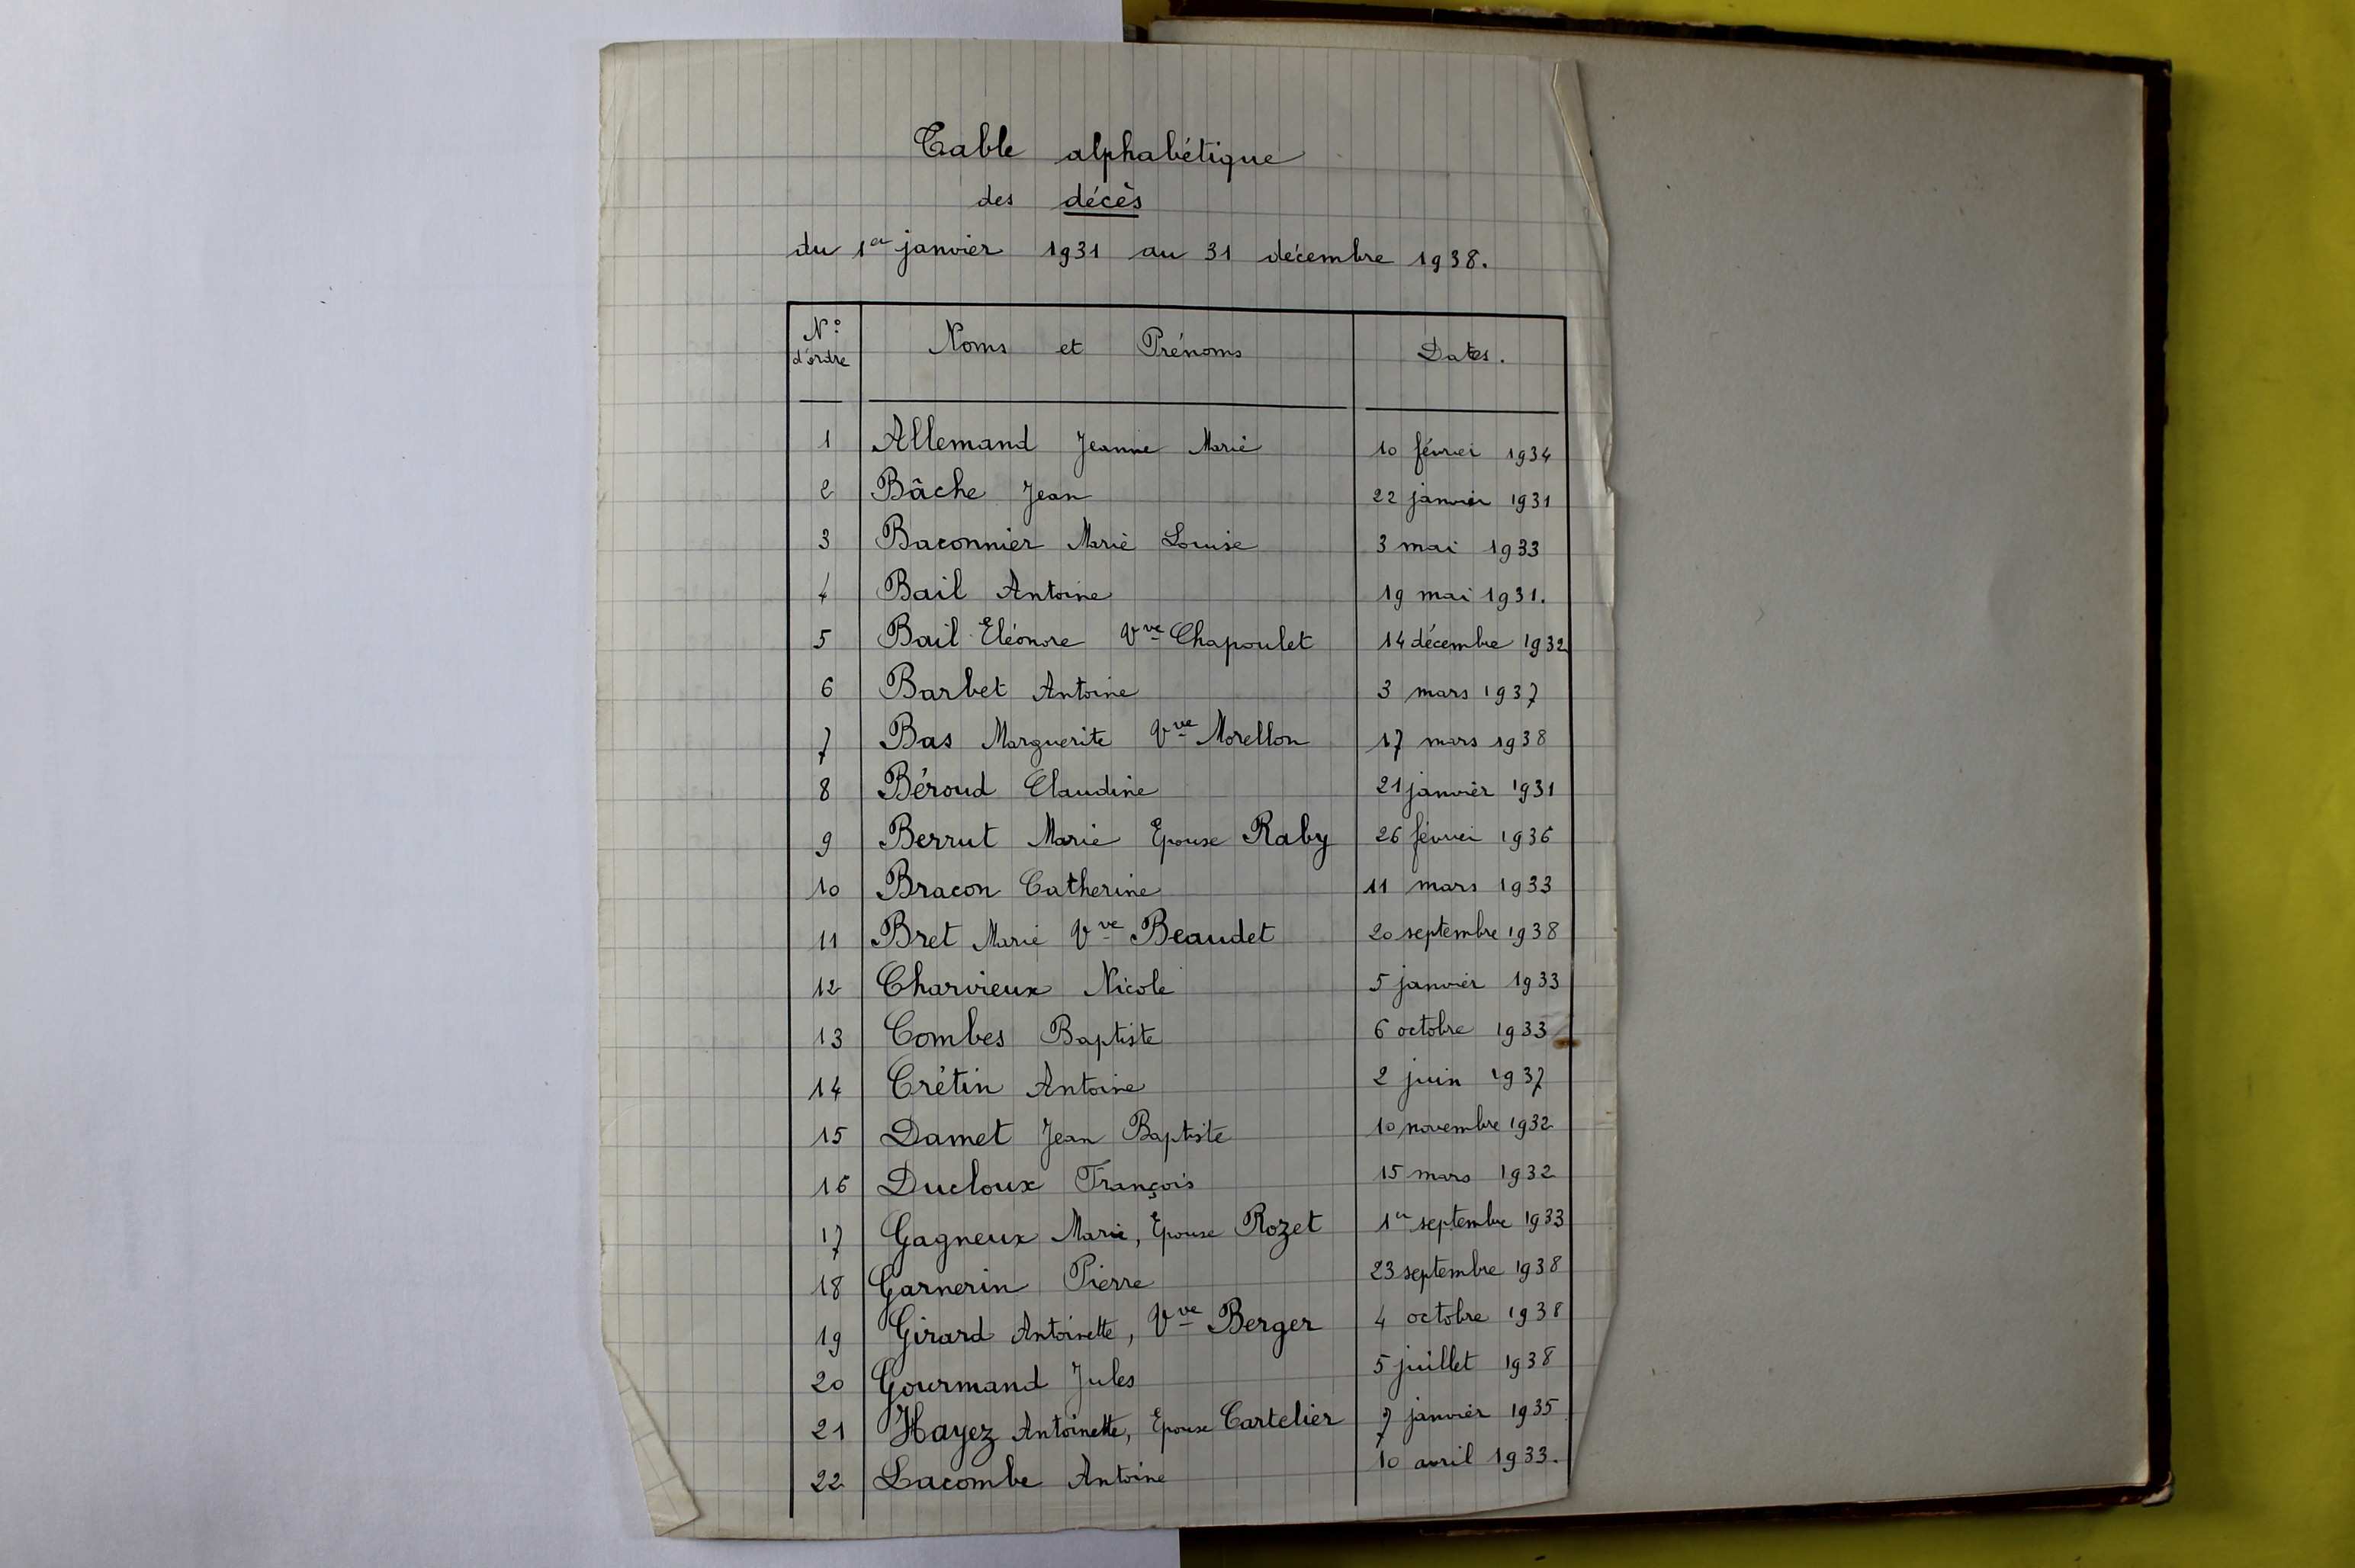 Table alphabétique
des décès
du 1er janvier 1931 au 31 décembre 1938.
N° d'ordre Noms et Prénoms Dates.
1 Allemand Jeanne Marie 10 févrie 1934
2 Bâche Jean 22 janvier 1931
3 Baconnier Marie Louise 3 mai 1933
4 Bail Antoine 19 mai 1931.
5 Bail Eléonore Vve Chapoulet 14 décembre 1932
6 Barbet Antoine 3 mars 1937
7 Bas Marguerite Vve Morellon 17 mars 1938
8 Béroud Claudine 21 janvier 1931
9 Berrut Marie Epouse Raby 26 févrie 1936
10 Bracon Catherine 11 mars 1933
11 Bret Marie Vve Beaudet 20 septembre 1938
12 Charvieux Nicole 5 janvier 1933
13 Combes Baptiste 6 octobre 1933
14 Crétin Antoine 2 juin 1937
15 Damet Jean Baptiste 10 novembre 1932
16 Ducloux François 15 mars 1932
17 Gagneux Marie, Epouse Rozet 1er septembre 1933
18 Garnerin Pierre 23 septembre 1938
19 Girard Antoinette, Vve Berger 4 octobre 1938
20 Gourmand Jules 5 juillet 1938
21 Hayez Antoinette, Epouse Cartelier 7 janvier 1935
22 Lacombe Antoine 10 avril 1933.